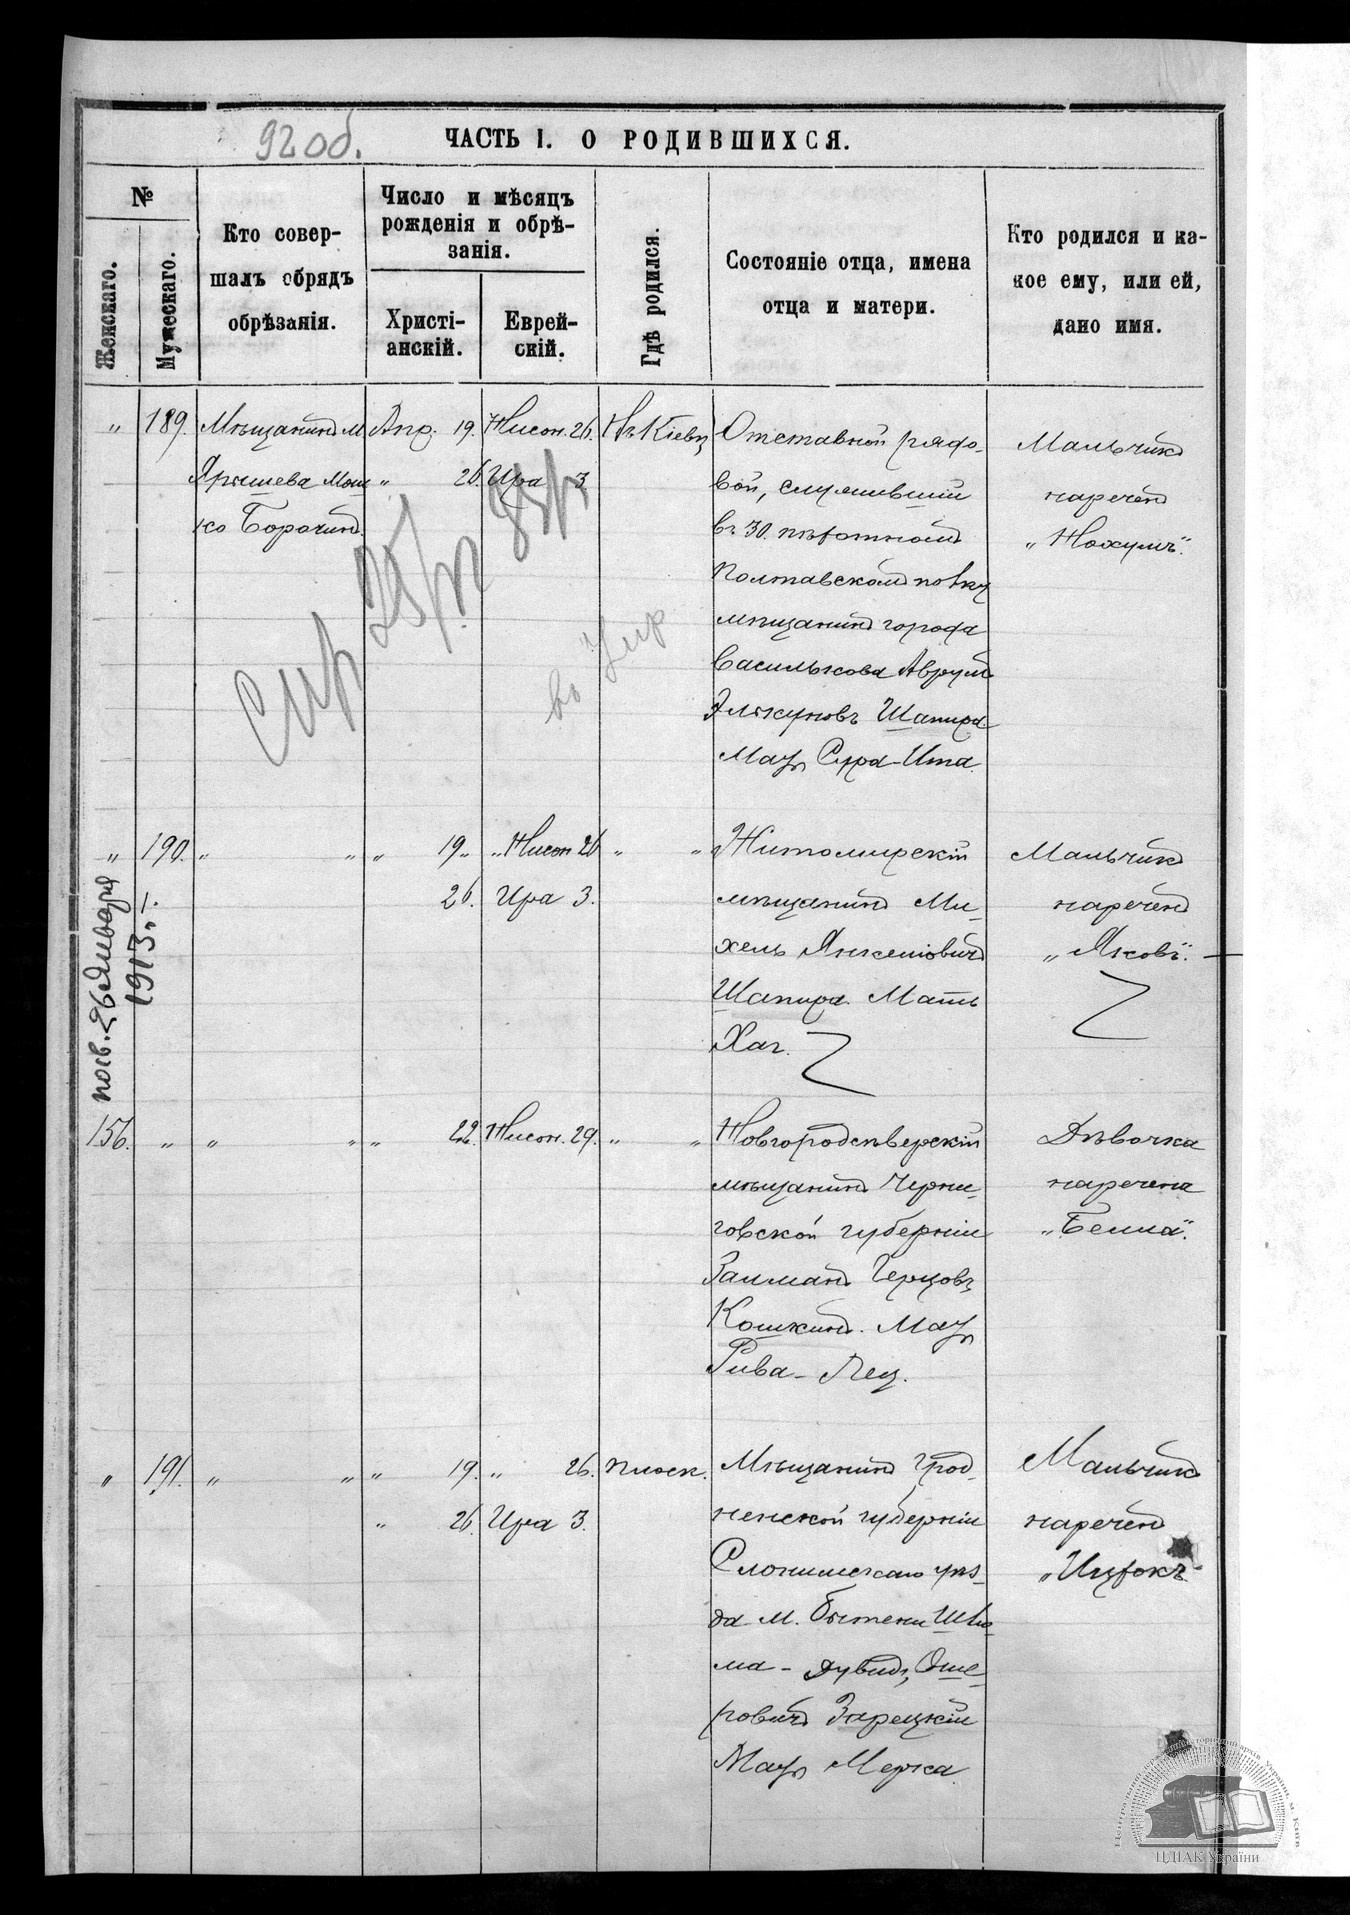 92 об.
ЧАСТЬ I. О РОДИВШИХСЯ.
№
Женскаго.
Мужескаго.
Кто совер-
шалъ обрядъ
обрѣзанія.
Число и мѣсяцъ
рожденія и обрѣ-
занія.
Христі-
анскій.
Еврей-
скій.
Гдѣ родился.
Состояніе отца, имена
отца и матери.
Кто родился и ка-
кое ему, или ей,
дано имя.
„ 189. Мѣщанинъ м. Апр. 19. Нисон. 26. Въ Кіевѣ
Ярышева Мош- „ 26. Ира 3
ко Борочинъ.
Отставной рядо-
вой, служившій
въ 30. пѣхотномъ
Полтавскомъ полку
мѣщанинъ города
Василькова Аврумъ
Элькуновъ Шапира.
Мать Сура-Ита.
Мальчикъ
нареченъ
„Нохумъ".
„ 190. „ „ „ 19. „ Нисон 26 „ „
26. Ира 3.
Житомирскій
мѣщанинъ Ми-
хель Янкелювичъ
Шапира. Мать
Хая.
Мальчикъ
нареченъ
„Яковъ".
26 Января
1913 г.
156. „ „ „ „ 22. Нисон. 29. „ „
Новгородсѣверскій
мѣщанинъ Черни-
говской губерніи
Залманъ Герцовъ
Кошкинъ. Мать
Рива-Лея.
Дѣвочка
наречена
„Белла".
„ 191. „ „ „ 19. „ 26. Плоск.
„ 26. Ира 3.
Мѣщанинъ Грод-
ненской губерніи
Слонимскаго уѣз-
да м. Бытени Шлю-
ма-Дувидъ Оше-
ровичъ Зарецкій
Мать Мерка.
Мальчикъ
нареченъ
„Ицхокъ"
ЦДІАК України